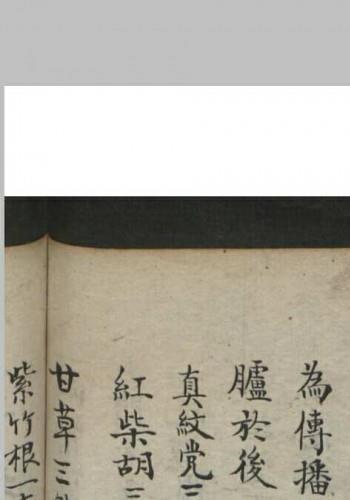 為傳播
臚於後
真紋党三
紅柴胡三
甘草三
紫竹根一